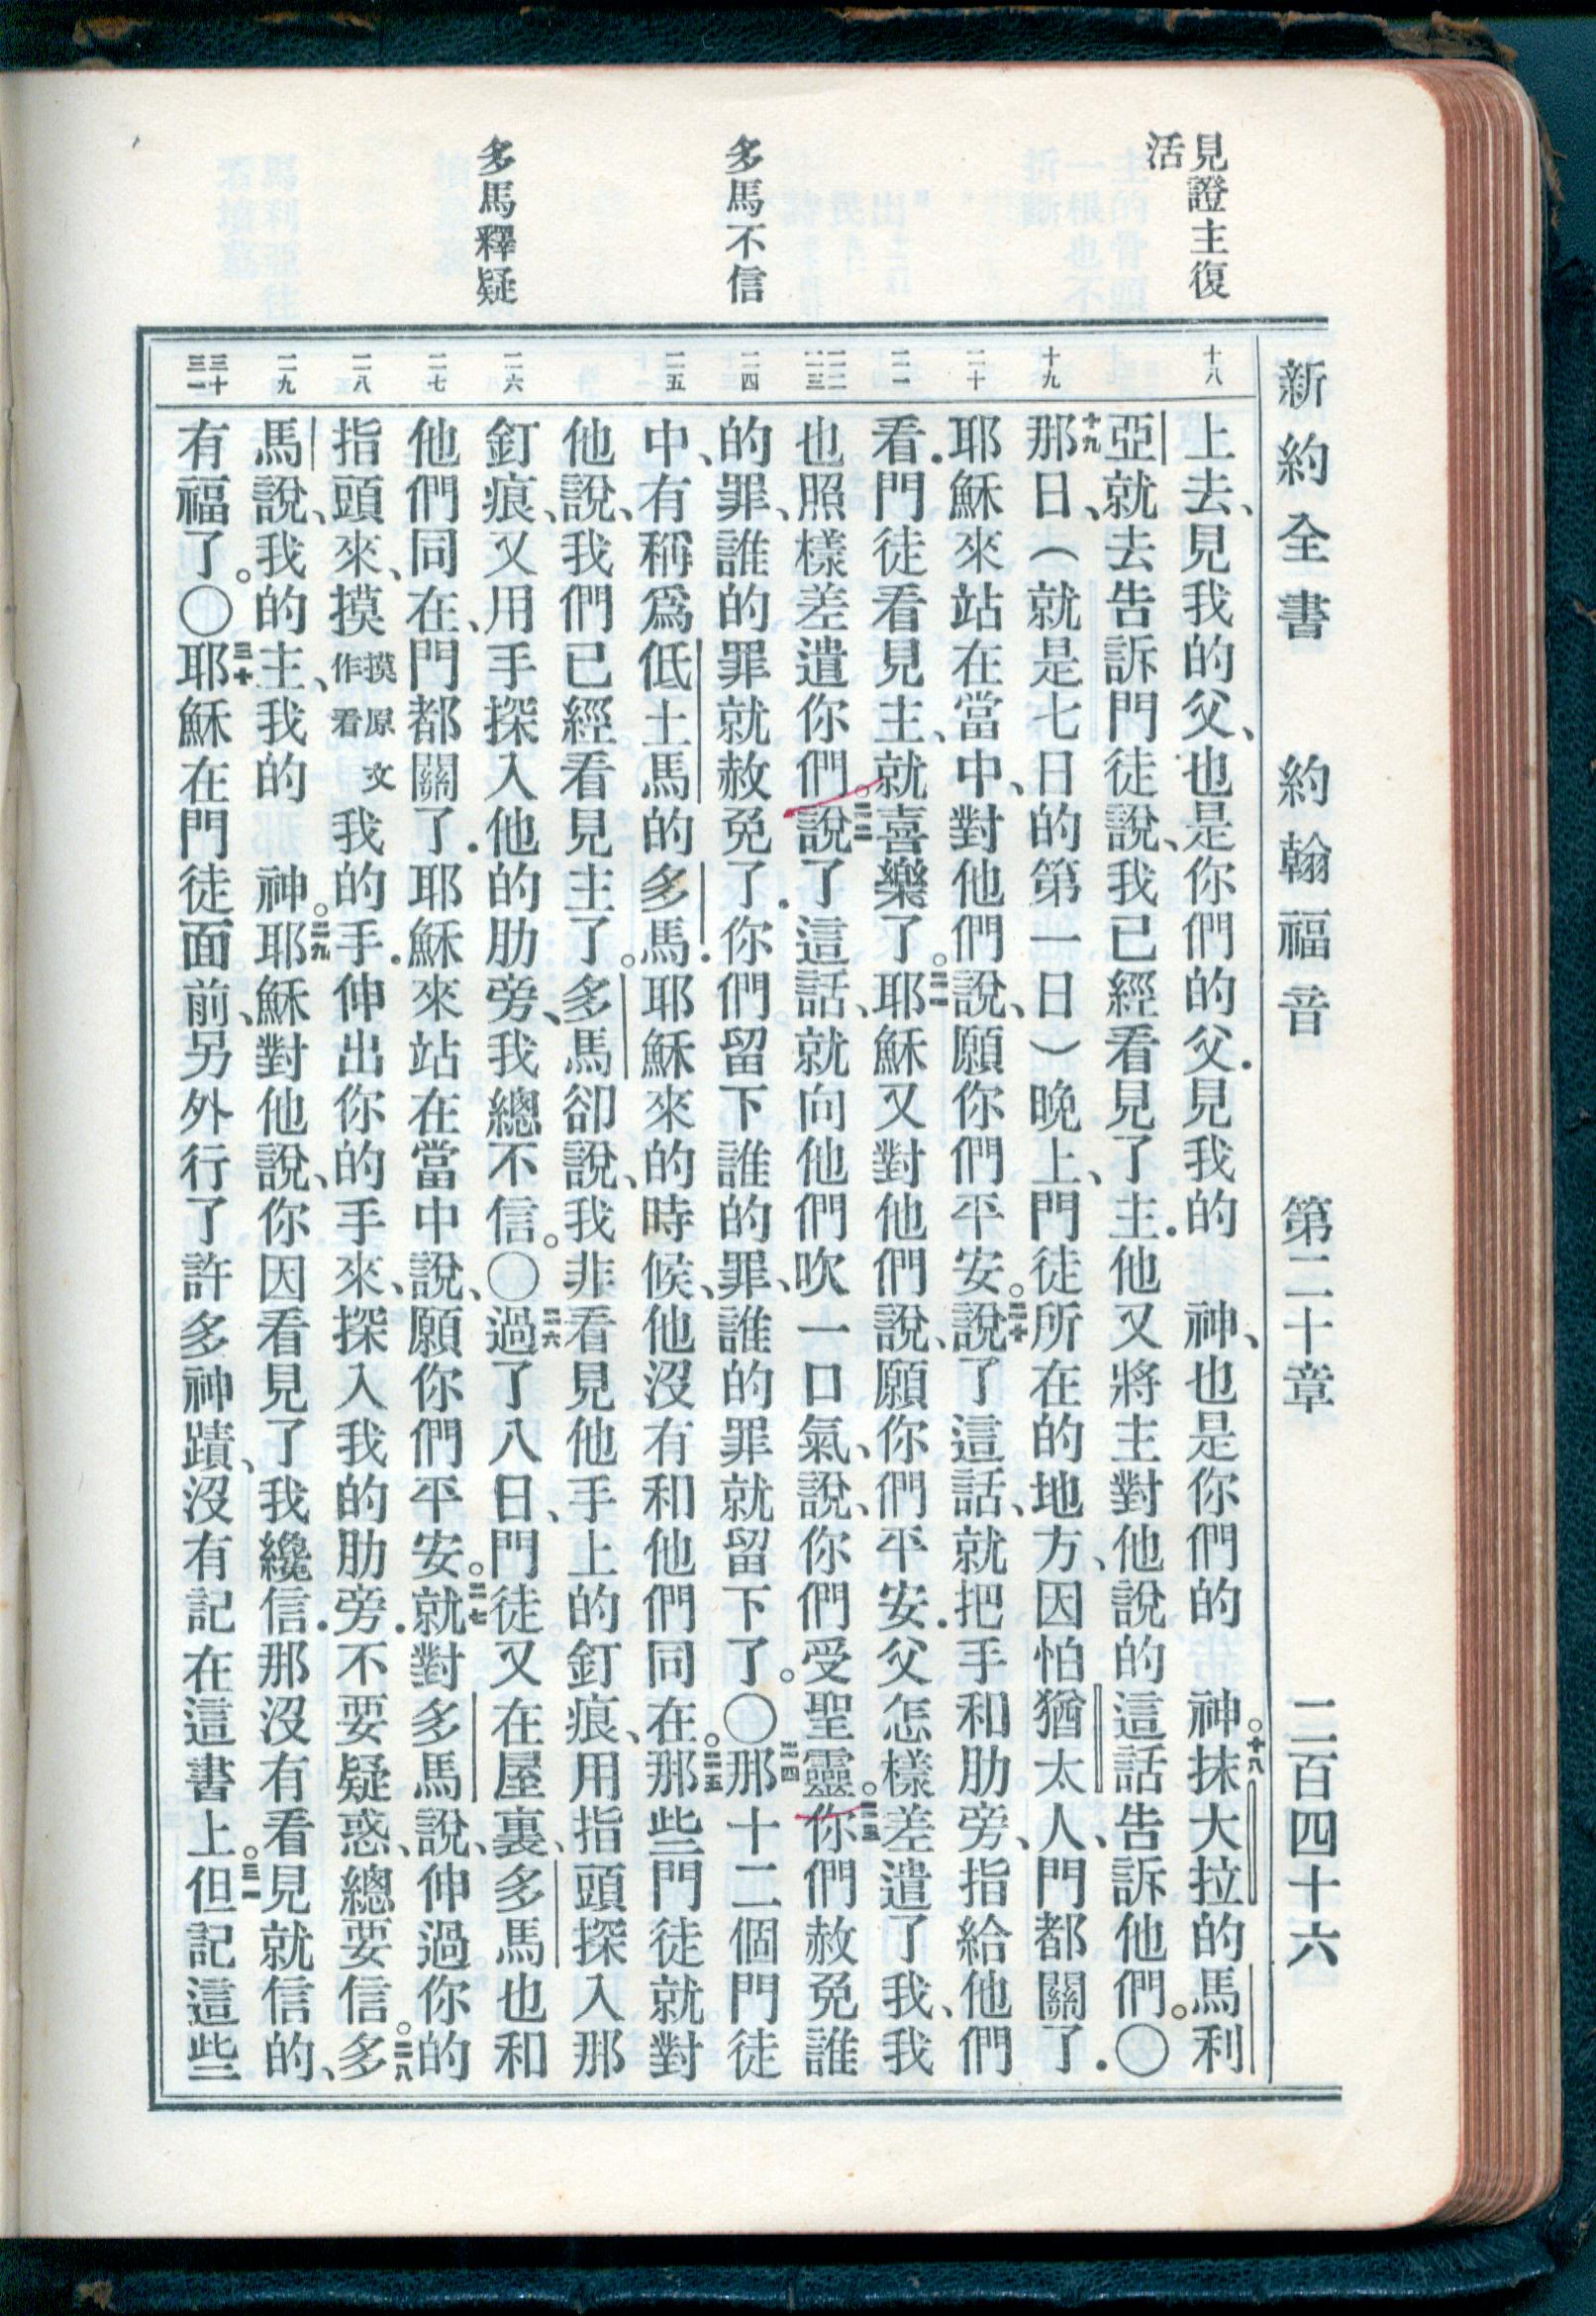 新約全書　約翰福音　第二十章　二百四十六
見證主復
活
多馬不信
多馬釋疑
十八
十九
二十
二一
二二
二三
二四
二五
二六
二七
二八
二九
三十
三一
上去、見我的父、也是你們的父．見我的　神、也是你們的　神。十八抹大拉的馬利
亞就去告訴門徒說、我已經看見了主．他又將主對他說的這話告訴他們。〇
十九那日、（就是七日的第一日）晚上、門徒所在的地方、因怕猶太人、門都關了．
耶穌來站在當中、對他們說、願你們平安。二十說了這話、就把手和肋旁、指給他們
看．門徒看見主、就喜樂了。二一耶穌又對他們說、願你們平安．父怎樣差遣了我、我
也照樣差遣你們。二二說了這話、就向他們吹一口氣、說、你們受聖靈。二三你們赦免誰
的罪、誰的罪就赦免了．你們留下誰的罪、誰的罪就留下了。〇二四那十二個門徒
中、有稱爲低土馬的多馬．耶穌來的時候、他沒有和他們同在。二五那些門徒就對
他說、我們已經看見主了。多馬卻說、我非看見他手上的釘痕、用指頭探入那
釘痕、又用手探入他的肋旁、我總不信。〇二六過了八日、門徒又在屋裏、多馬也和
他們同在、門都關了．耶穌來站在當中說、願你們平安。二七就對多馬說、伸過你的
指頭來、摸摸原文作看我的手．伸出你的手來、探入我的肋旁．不要疑惑、總要信。二八多
馬說、我的主、我的　神。二九耶穌對他說、你因看見了我纔信．那沒有看見就信的、
有福了。〇三十耶穌在門徒面前、另外行了許多神蹟、沒有記在這書上。三一但記這些